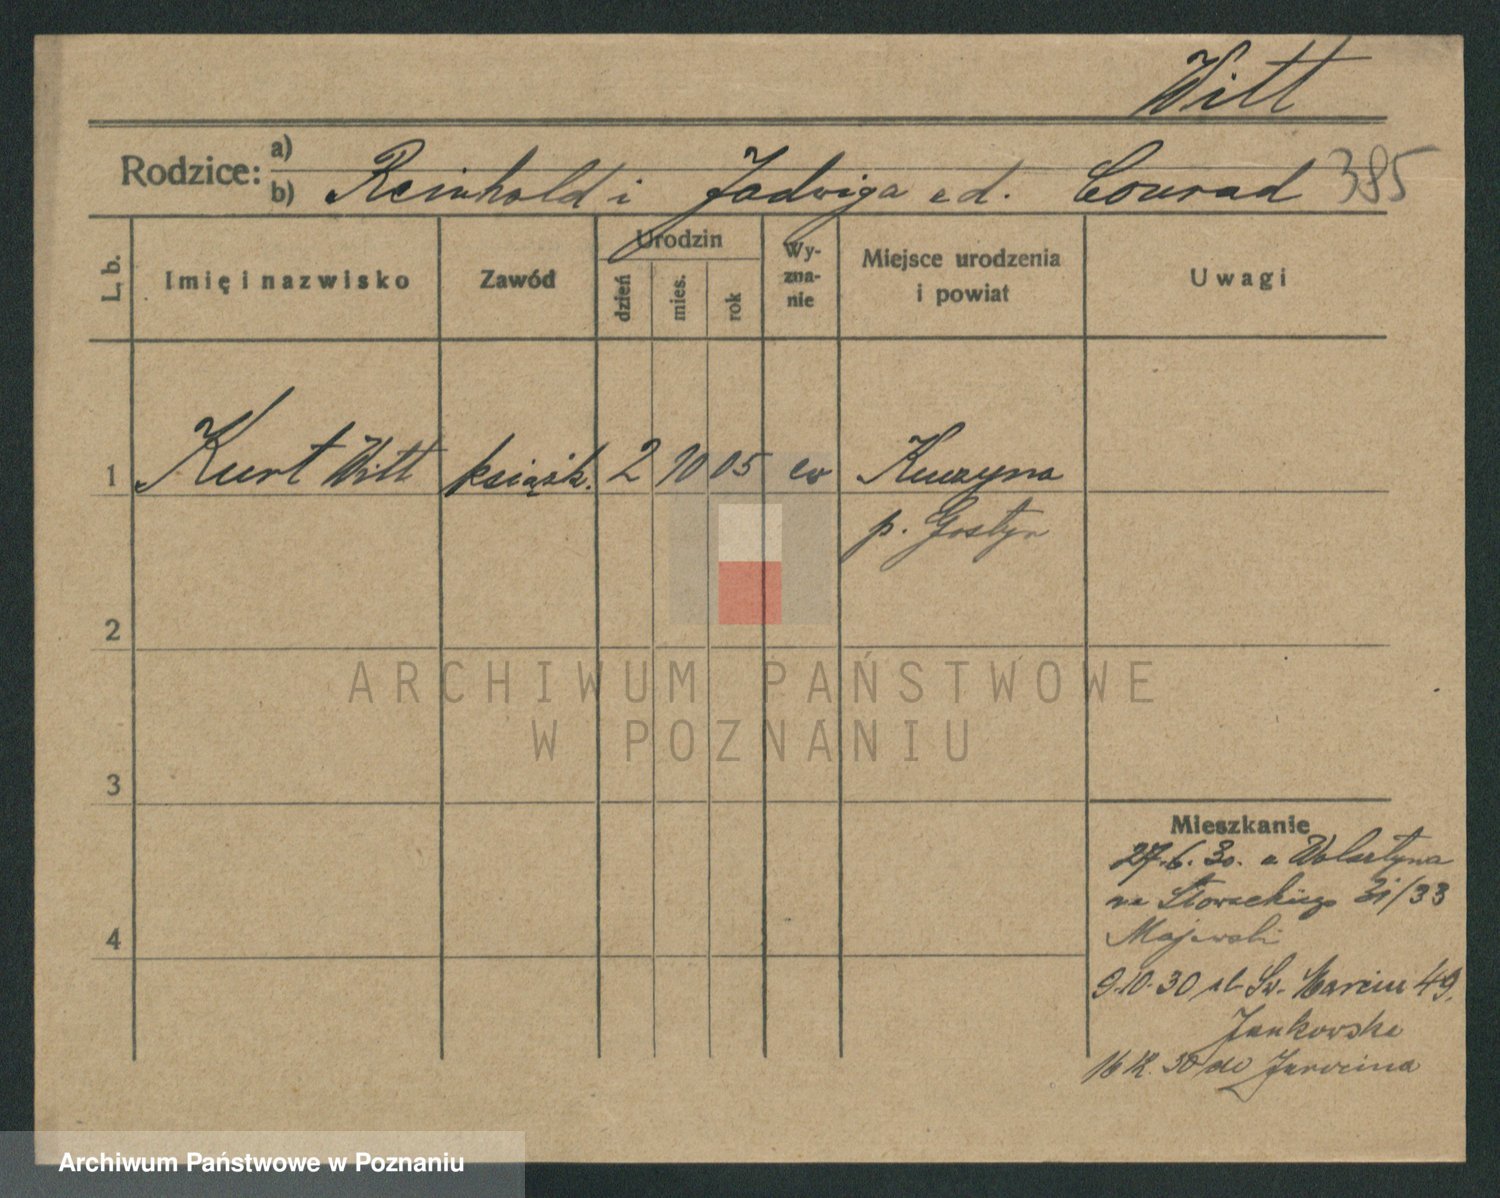 Witt
Rodzice: a)
b) Reinhold i Jadwiga z d. Conrad 385
L. b. Imię i nazwisko Zawód Urodzin dzień mies. rok Wy-zna-nie Miejsce urodzenia i powiat Uwagi
1 Kurt Witt książk. 2 10 05 ew
p. Gostyń
2
ARCHIWUM PAŃSTWOWE
W POZNANIU
3
Mieszkanie
27.6.30. z Wolsztyna
na Słowackiego 31/33
Majewski
4
9.10.30 Św. Marcin 49.
Jankowska
16 12. 30 do Jarocina
Archiwum Państwowe w Poznaniu